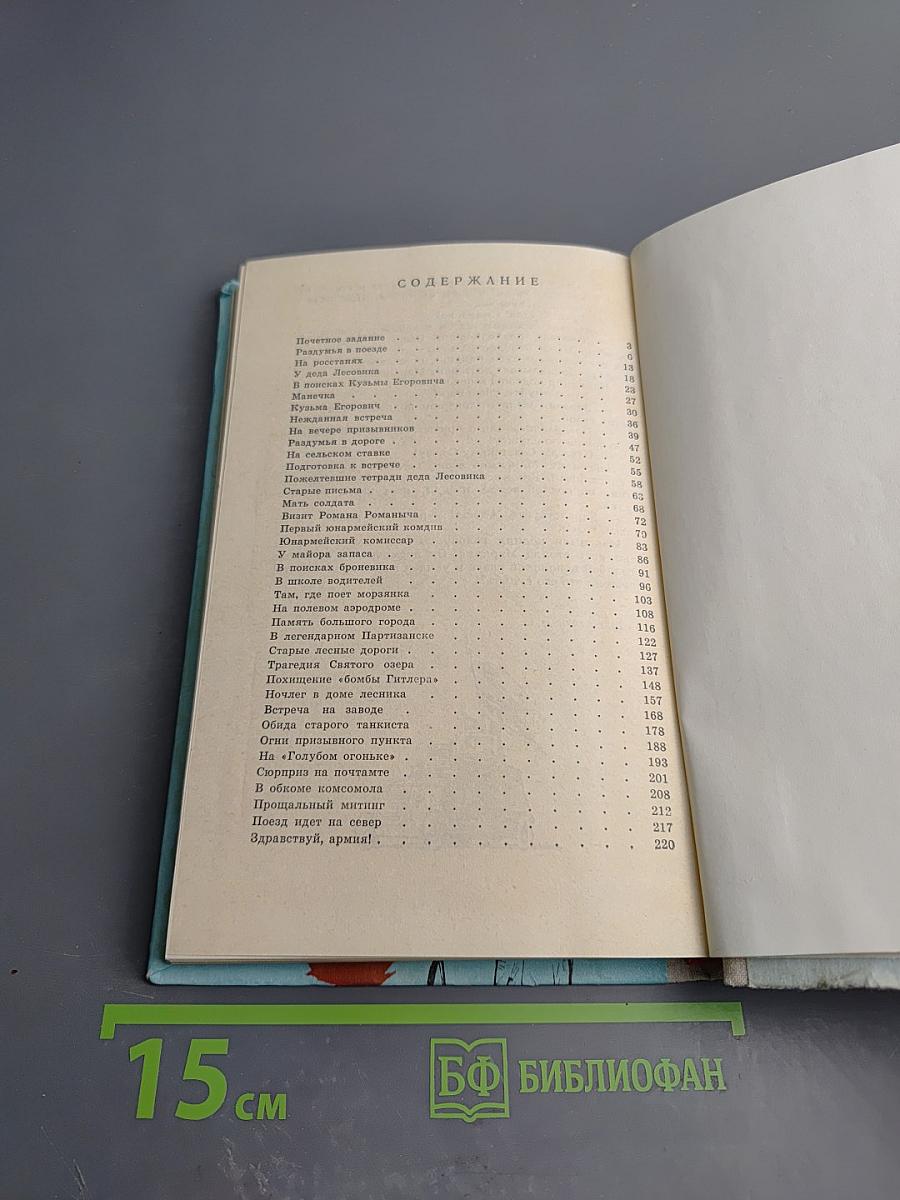 СОДЕРЖАНИЕ
Почетное задание . . . . . . . . . . 3
Раздумья в поезде . . . . . . . . . . 6
На росстанях . . . . . . . . . . 13
У деда Лесовика . . . . . . . . . . 18
В поисках Кузьмы Егоровича . . . . . . . . 23
Манечка . . . . . . . . . . 27
Кузьма Егорович . . . . . . . . . . 30
Нежданная встреча . . . . . . . . . 36
На вечере призывников . . . . . . . . 39
Раздумья в дороге . . . . . . . . . . 47
На сельском ставке . . . . . . . . . 52
Подготовка к встрече . . . . . . . . . 55
Пожелтевшие тетради деда Лесовика . . . . . . 58
Старые письма . . . . . . . . . . 63
Мать солдата . . . . . . . . . . 68
Визит Романа Романыча . . . . . . . . 72
Первый юнармейский комдив . . . . . . . . 79
Юнармейский комиссар . . . . . . . . 83
У майора запаса . . . . . . . . . 86
В поисках броневика . . . . . . . . . 91
В школе водителей . . . . . . . . . 96
Там, где поет морзянка . . . . . . . . 103
На полевом аэродроме . . . . . . . . . 108
Память большого города . . . . . . . . 116
В легендарном Партизанске . . . . . . . . 122
Старые лесные дороги . . . . . . . . . 127
Трагедия Святого озера . . . . . . . . 137
Похищение «бомбы Гитлера» . . . . . . . . 148
Ночлег в доме лесника . . . . . . . . 157
Встреча на заводе . . . . . . . . . 168
Обида старого танкиста . . . . . . . . 178
Огни призывного пункта . . . . . . . . 188
На «Голубом огоньке» . . . . . . . . . 193
Сюрприз на почтамте . . . . . . . . . 201
В обкоме комсомола . . . . . . . . . 208
Прощальный митинг . . . . . . . . . 212
Поезд идет на север . . . . . . . . . 217
Здравствуй, армия! . . . . . . . . . . 220
15 см
БФ БИБЛИОФАН